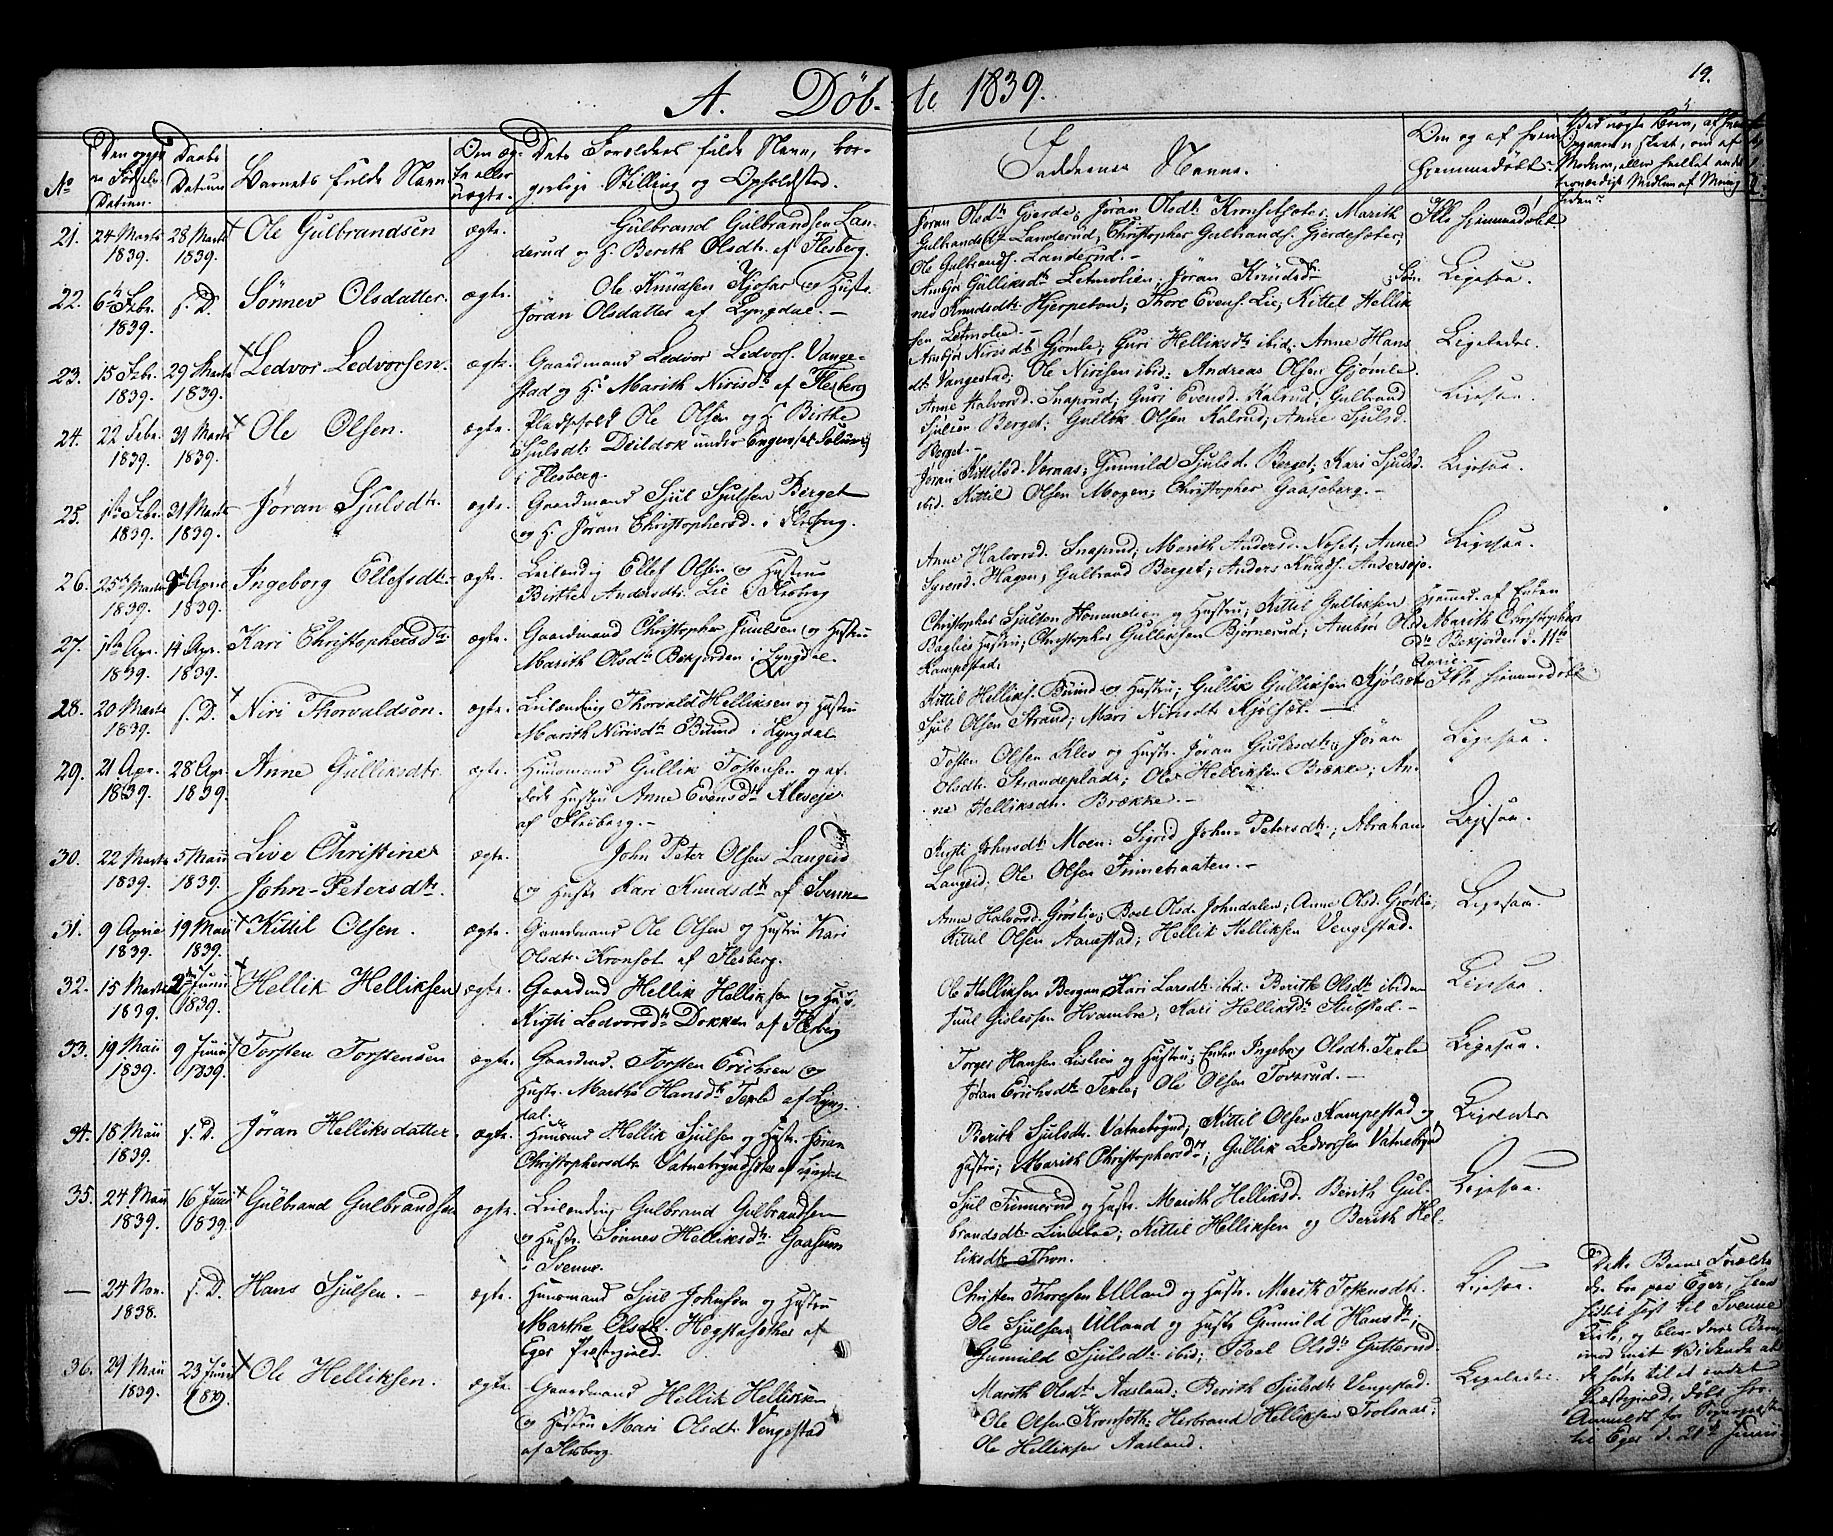 19.
A. Döb-te 1839.
No
Datum.
Daabs Datum
Barnets fulde Navn
Om ægte eller uægte.
Dets Forældres fulde Navn, borgerlige Stilling og Opholdsted.
Faddernes Navne.
Om og af hvem hjemmedöbt.
21. 24 Marts 1839. 28 Marts 1839. Ole Gulbrandsen ægte.
Gulbrand Gulbrandsen Landerud og H. Berith Olsdtr. af Flesberg.
Jöran Olsdtr Gjerde, Jöran Olsdtr Kronsetsæter, Marith
Gulbrandsdtr Landerud, Christopher Gulbrands. Gjerdesæter,
Ole Gulbrands. Landerud.-
Ikke hjemmedöbt
22. 6te Febr. 1839. s. D. Sönnev Olsdatter. ægte.
Ole Knudsen Kjosar og Hustr.
Jöran Olsdatter af Lyngdal.-
Ambjör Gulliksdtr Letmolien; Jöran Knudsdtr; Sönnev
Knudsdtr Hjerpetun; Thore Evens. Lie; Kittel Helliksen
Letmolie.-
Ligesaa.
23. 15 Febr. 1839. 29 Marts 1839. Ledvor Ledvorsen. ægte.
Gaardmand Ledvor Ledvors. Vangestad
og H. Marith Nirisdtr af Flesberg
Ambjör Nirisdtr Gjömle; Guri Helliksdtr ibid; Anne Hansdtr
Vangestad; Ole Nirisen ibid; Andreas Olsen Gjömle.
Ligeledes.
24. 22 Febr. 1839. 31 Marts 1839. Ole Olsen. ægte.
Pladsfolk Ole Olsen og H. Birthe
Sjulsdtr Deildok under
i Flesberg.
Anne Halvorsd. Snaprud; Guri Evensd. Kalrud; Gulbrand
Berget; Gullik Olsen Kalrud; Anne Sjulsd.
Berget.-
Ligesaa.
25. 1ste Febr. 1839. 31 Marts 1839. Jöran Sjulsdtr. ægte.
Gaardmand Sjul Sjulsen Berget
og H. Jöran Christophersd. i Flesberg.
Jöran Kittilsd. Vornæs; Gunnild Sjulsd. Berget; Kari Sjulsd.
ibid. Kittil Olsen Mogen; Christopher Gaaseberg.-
Ligesaa.
26. 25de Marts 1839. April 1839. Ingeborg Ellefsdtr. ægte.
Leilending Ellef Olsen og Hustrue
Birthe Andersdtr. Lie Flesberg
Anne Halvorsd. Snaprud; Marith Andersd. Noset; Anne
Hagen; Gulbrand Berget; Anders Knuds. Andersöje.
Ligesaa.
27. 1ste Apr. 1839. 14 Apr. 1839. Kari Christophersdtr. ægte.
Gaardmand Christopher og Hustru
Marith Olsdtr Bekjorden i Lyngdal.
Christopher Sjulsen og Hustru; Kittil Gulliksen
Hustru; Christopher Gulliksen Björnerud; Ambjör Olsd.
Kampestad.
af Enken Marith Christophersdtr Bekjorden d. 11te April.-
28. 20 Marts 1839. s. D. Niri Thorvaldsön. ægte.
Leilænding Thorvald Helliksen og Hustru
Marith Nirisdtr Buind i Lyngdal
Kittil Helliks. Buind og Hustru; Gullik Gulliksen Kjölset
Sjul Olsen Strand; Mari Nirisdtr Kjölset.-
Ikke hjemmedöbt
29. 21 Apr. 1839. 28 Apr. 1839. Anne Gulliksdtr. ægte.
Huusmand Gullik Tostensen og afdöde
Hustru Anne Evensdtr Klevoje
af Flesberg.-
Tosten Olsen Klev og Hustr. Jöran; Jöran
Olsdtr. Strandeplads; Ole Helliksen Brække; Anne
Helliksdtr. Brække.-
Ligesaa.
30. 22 Marts 1839. 5 Maii 1839. Live Christine John-Petersdtr. ægte.
John Peter Olsen Langeid
og Hustr. Kari Knudsdtr af Svenne
Kirsti Johnsdtr Moen; Sigrid John-Petersdtr; Abraham
Langeid; Ole Olsen Finnebraaten.-
Ligesaa.
31. 9 April 1839. 19 Maii 1839. Kittil Olsen. ægte.
Gaardmand Ole Olsen og Hustru Kari
Olsdtr. Kronset af Flesberg.
Anne Halvorsd. Gröslie; Boel Olsd. Johndalen; Anne Olsd. Gröslie;
Kittil Olsen Aarestad; Hellik Helliksen Vengestad.
Ligesaa.
32. 15 Marts 1839. 2den Junii 1839. Hellik Helliksen ægte.
Gaardmd Hellik Helliksen og Hus.
Kirsti Ledvorsdtr Dokken af Flesberg
Ole Helliksen Bergan Kari Larsdtr ibid; Berith Olsdtr ibidem
Juul Gislesen Hvambre; Kari Helliksdtr Stubstad.-
Ligesaa.
33. 19 Maii 1839. 9 Junii 1839. Torsten Torstensen ægte.
Gaardmd. Torsten Erichsen og
Hustr. Marthe Hansdtr Texle af Lyngdal.
Torger Hansen Lislien og Hustru; Enken Ingeborg Olsdtr. Texle
Jöran Erichsdtr Texle; Ole Olsen Toverud.-
Ligesaa.
34. 18 Maii 1839. s. D. Jöran Helliksdatter ægte.
Huusmd Hellik Sjulsen og Hustr. Jöran
Christophersdtr. Vatnebryndseie af Lyngdal
Berith Sjulsdtr. Vatnebrynd; Kittil Olsen Kampestad og
Hustru; Marith Christophersdtr; Gullik Ledvorsen Vatnebrynd
Ligeledes
35. 24 Maii 1839. 16 Junii 1839. Gulbrand Gulbrandsen ægte.
Leilænding Gulbrand Gulbrandsen
og Hustr. Sönnev Helliksdtr Gaasum
i Svenne.
Sjul Funnerud og Hustr. Marith Helliksd. Berith Gulbrandsdtr.
Lindboe; Kittil Helliksen og Berith Helliksdtr
Thon.
Ligesaa.
- 24 Nov. 1838. s. D. Hans Sjulsen.- ægte.
Huusmand Sjul Johnsön og Hustru
Marthe Olsdtr. af
Eger Præstegjeld.
Christen Thoresen Ulland og Hustr. Marith
Ole Sjulsen Ulland og Hustr. Gunnild Hansdtr;
Gunnild Sjulsdtr ibid; Boel Olsdtr Gutterud.
Ligesaa.
Dette Barns Forældre
boe paa Eger,
til Svenne
Kirke, og blev deres Barn
med mit Vidende at
de hörte til et andet
Præstegjeld, döbt her.
Anmeldt for Sognepræsten
til Eger d. 21de Junii
36. 29 Maii 1839. 23 Junii 1839. Ole Helliksen. ægte.
Gaardmand Hellik Helliksen
og Hustru Mari Olsdtr. Vengestad
af Flesberg.
Marith Olsdtr Aasland; Berith Sjulsdtr Vengestad.
Ole Olsen Kronseth; Herbrand Helliksen Trolsaas;
Ole Helliksen Aasland.
Ligeledes.